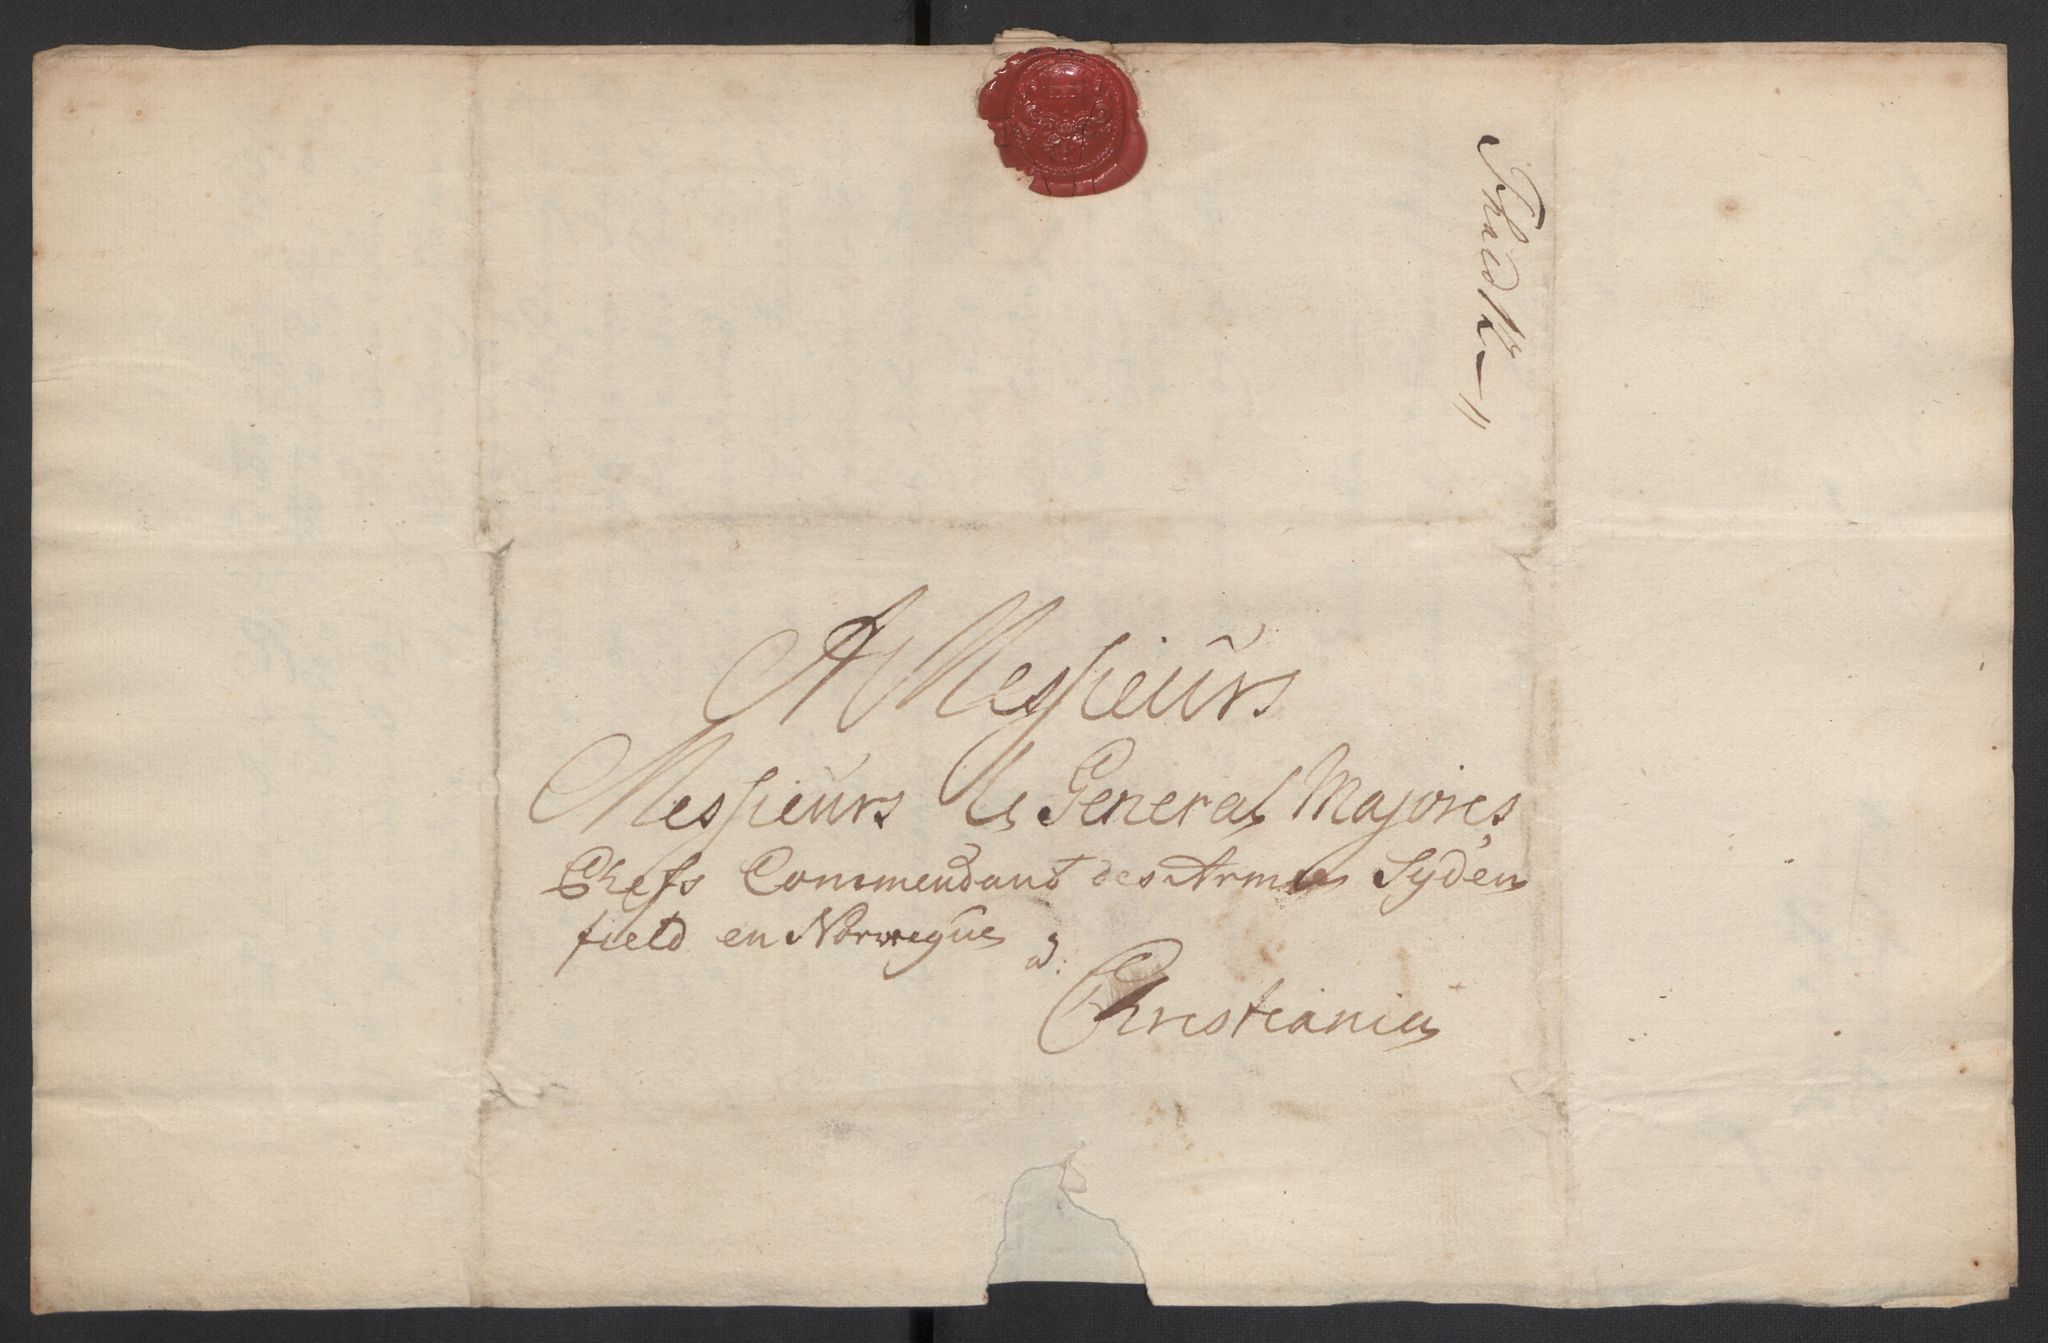 A Messieurs
Messieurs les General Majores
Chefs Commendant des Armee Syden
field en Norwegue
a:
Christiania